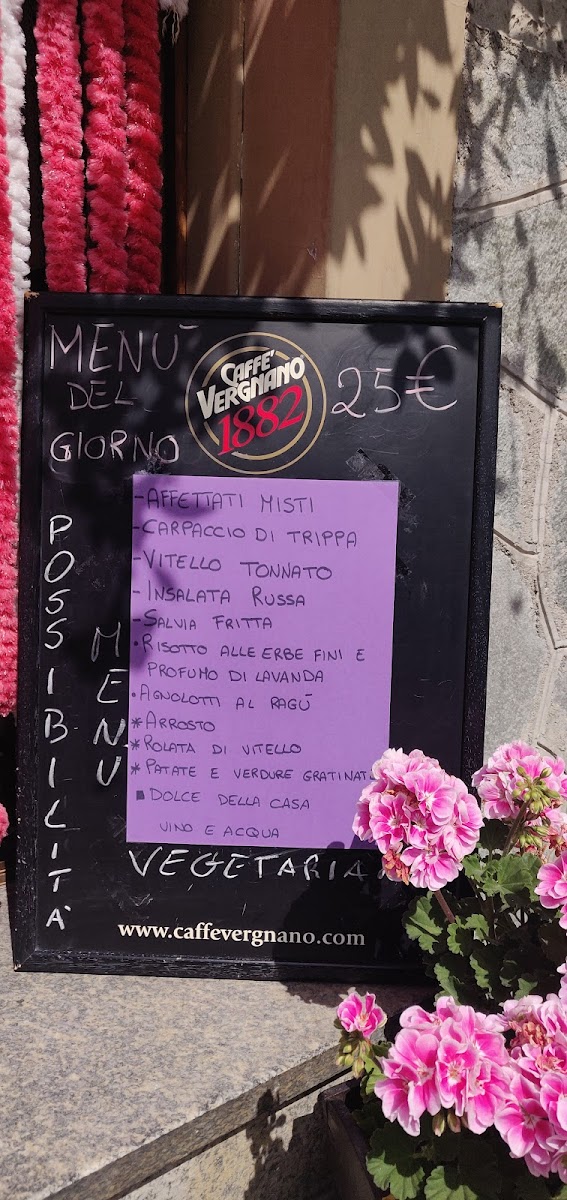 MENU'
DEL
GIORNO
CAFFÈ
VERGNANO
1882
25€
-AFFETTATI MISTI
-CARPACCIO DI TRIPPA
-VITELLO TONNATO
-INSALATA RUSSA
-SALVIA FRITTA
•RISOTTO ALLE ERBE FINI E
PROFUMO DI LAVANDA
•AGNOLOTTI AL RAGÚ
*ARROSTO
*ROLATA DI VITELLO
*PATATE E VERDURE GRATINAT
▪DOLCE DELLA CASA
VINO E ACQUA
POSSIBILITÀ
MENU
VEGETARIA
www.caffevergnano.com